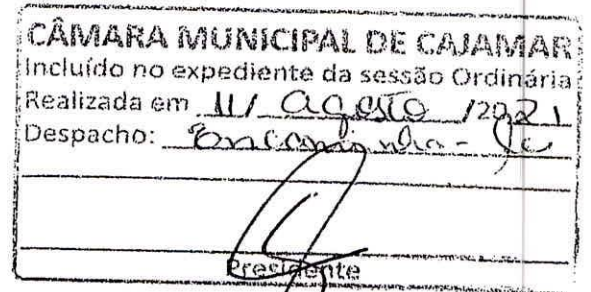 CÂMARA MUNICIPAL DE CAJAMAR
Incluído no expediente da sessão Ordinária
Realizada em 11/ agosto /2021
Despacho: Encaminha-se
Presidente